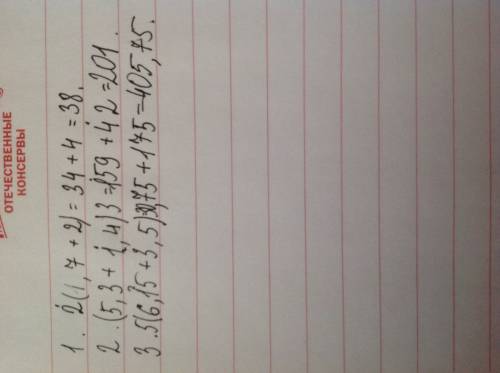 ОТЕЧЕСТВЕННЫЕ
КОНСЕРВЫ
1. 2(1,7+2)=34+4=38.
2.(5,3+1,4)3=159+42=201.
3.5(6,15+3,5)=,75+175=405,75.